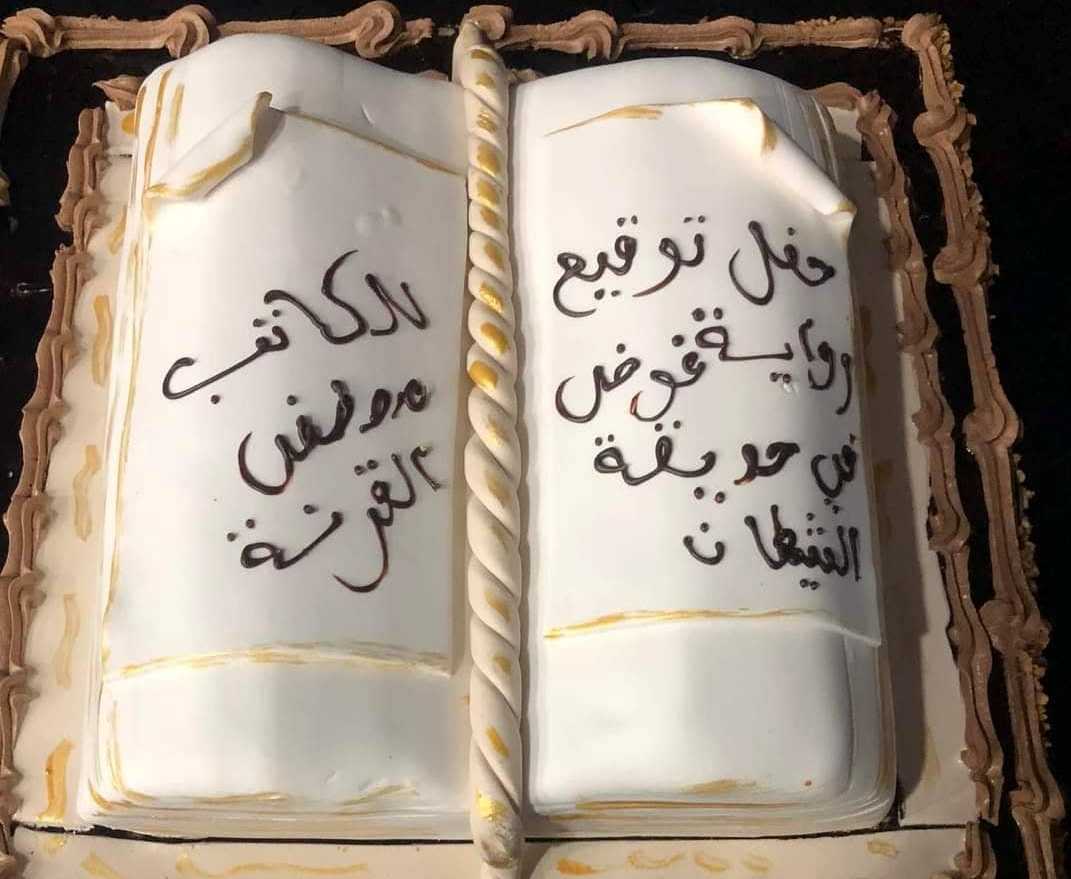 حفل توقيع
رواية فوضى
في حديقة
الشيطان
للكاتب
مصطفى
القرنة